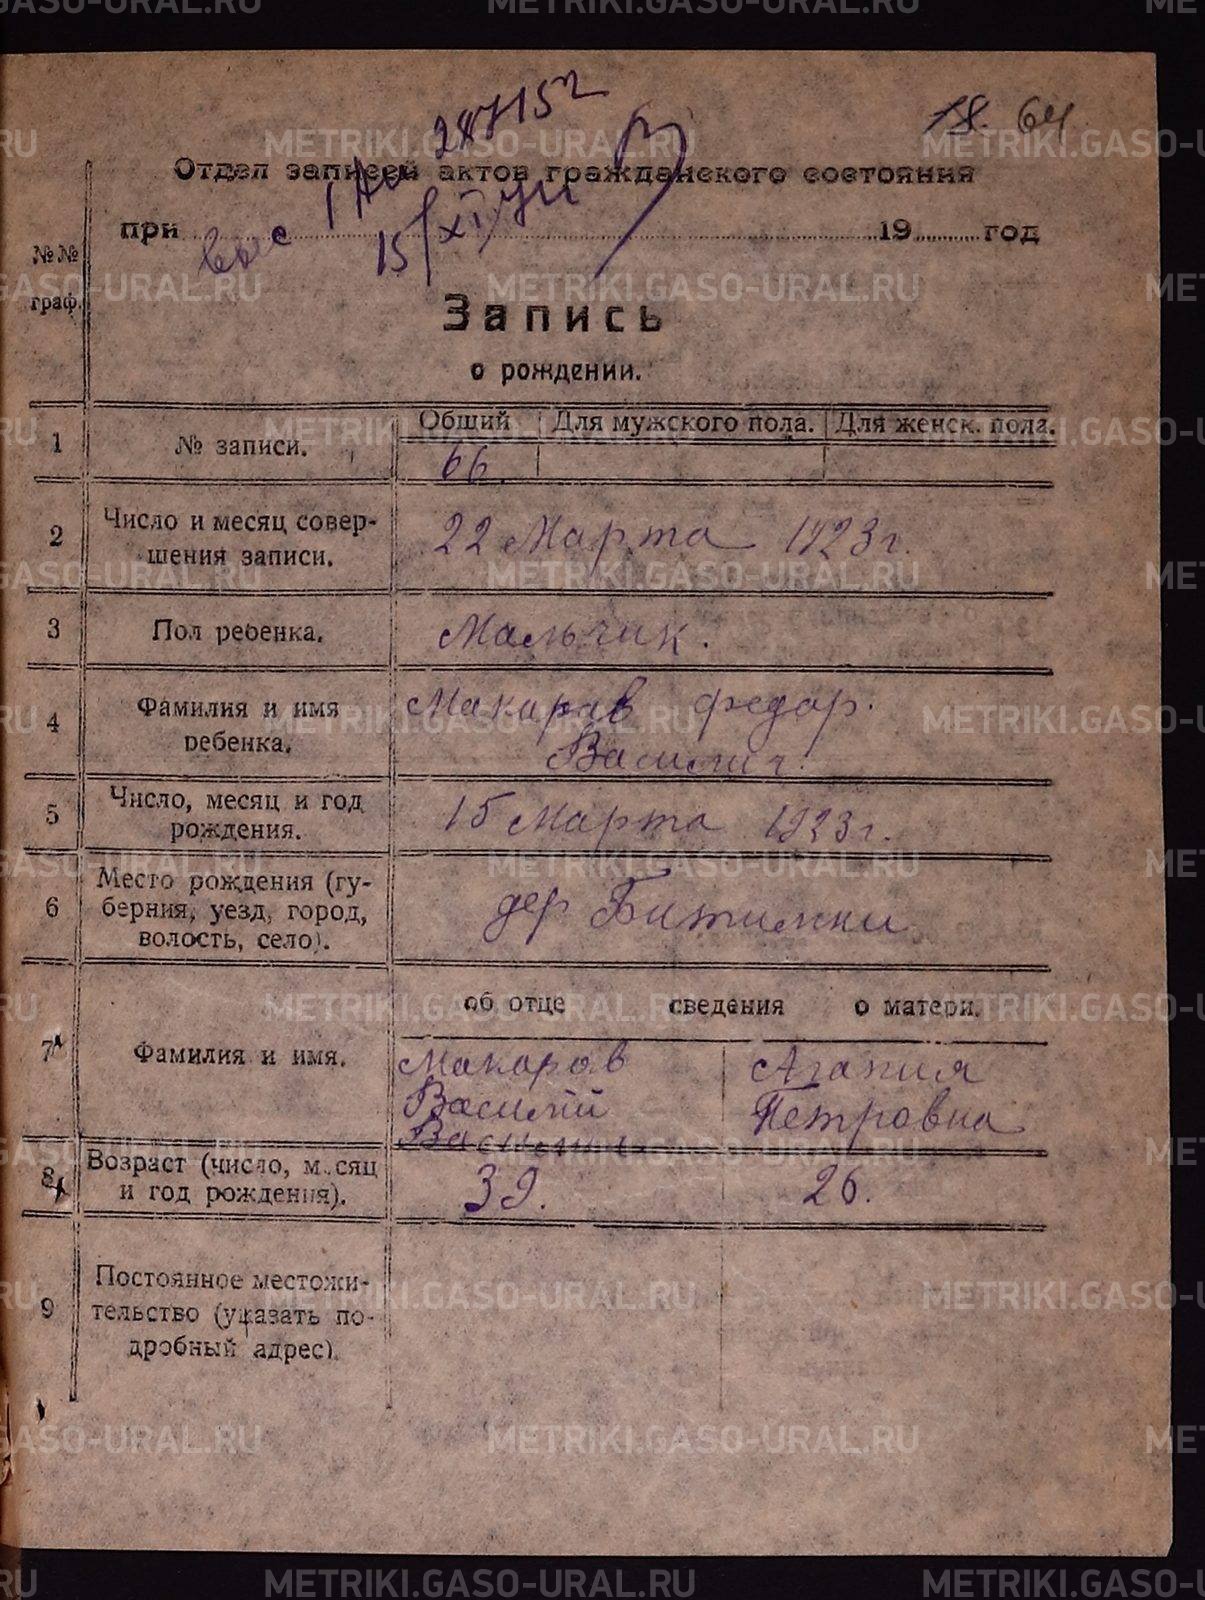 18. 64
247152
Отдел записей актов гражданского состояния
при 19 год
15/XI
№№
граф.
Запись
о рождении.
Общий Для мужского пола. Для женск. пола.
1 № записи. 66
2 Число и месяц совер-
шения записи.
22 Марта 1923 г.
3 Пол ребенка. Мальчик.
4 Фамилия и имя
ребенка.
Макаров Федор.
Василич.
5 Число, месяц и год
рождения.
15 Марта 1923 г.
6 Место рождения (гу-
берния, уезд, город,
волость, село).
дер Битимки
об отце сведения о матери.
7 Фамилия и имя.
Макаров
Василий
Агапия
Петровна
8 Возраст (число, месяц
и год рождения).
39. 26.
9 Постоянное местожи-
тельство (указать по-
дробный адрес).
METRIKI.GASO-URAL.RU